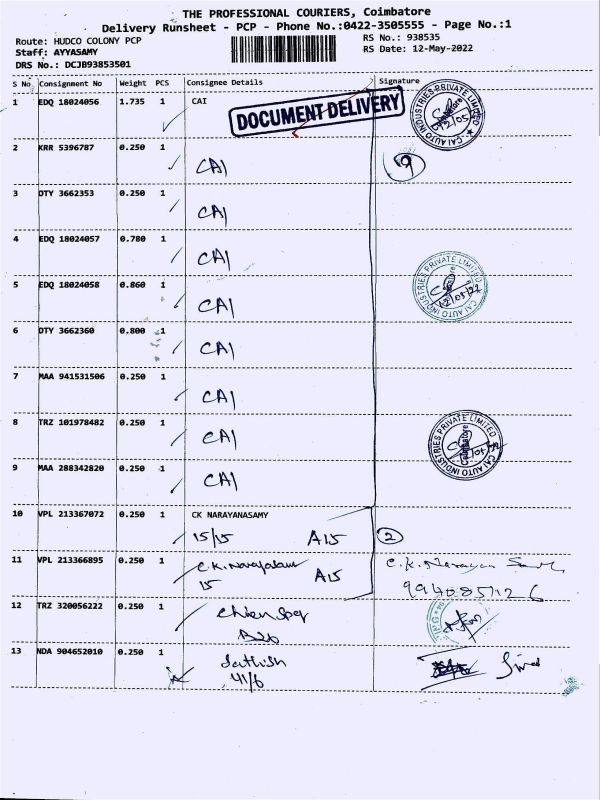 THE PROFESSIONAL COURIERS, Coimbatore
Delivery Runsheet - PCP - Phone No.:0422-3505555 - Page No.:1
Route: HUDCO COLONY PCP
Staff: AYYASAMY
DRS No.: DCJB93853501
RS No.: 938535
RS Date: 12-May-2022
S No Consignment No Weight PCS Consignee Details Signature
1 EDQ 18024056 1.735 1 CAI
DOCUMENT DELIVERY
CAI AUTO INDUSTRIES PRIVATE LIMITED
2 KRR 5396787 0.250 1
CAI 9
3 DTY 3662353 0.250 1
CAI
4 EDQ 18024057 0.780 1
CAI
CAI AUTO INDUSTRIES PRIVATE LIMITED
12/05/22
5 EDQ 18024058 0.860 1
CAI
6 DTY 3662360 0.800 1
CAI
7 MAA 941531506 0.250 1
CAI
8 TRZ 101978482 0.250 1
CAI
CAI AUTO INDUSTRIES PRIVATE LIMITED
9 MAA 288342820 0.250 1
CAI
10 VPL 213367072 0.250 1 CK NARAYANASAMY
15/15 A15 2
11 VPL 213366895 0.250 1
15 A15
12 TRZ 320056222 0.250 1
13 NDA 904652010 0.250 1
Sathish
41/6